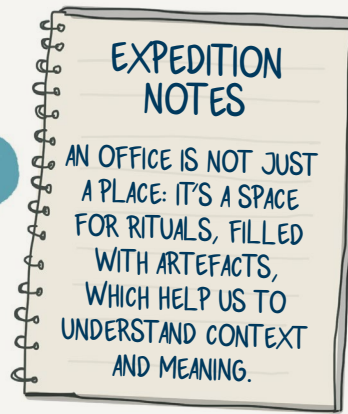 EXPEDITION
NOTES
AN OFFICE IS NOT JUST
A PLACE: IT'S A SPACE
FOR RITUALS, FILLED
WITH ARTEFACTS,
WHICH HELP US TO
UNDERSTAND CONTEXT
AND MEANING.